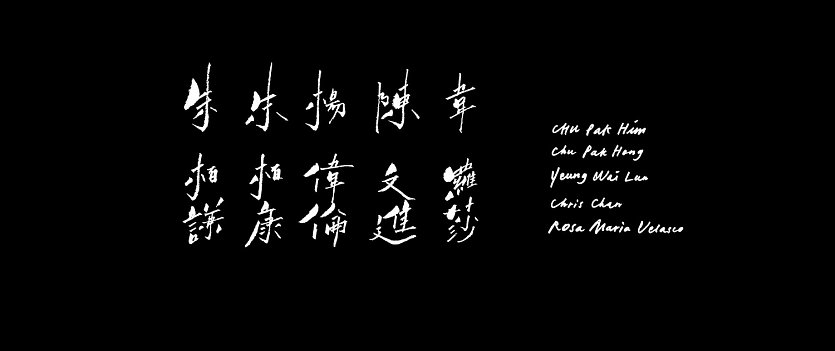 朱柏謙
朱柏康
楊偉倫
陳文進
韋蘿莎
CHU Pak Him
Chu Pak Hong
Yeung Wai Lun
Chris Chan
Rosa Maria Velasco